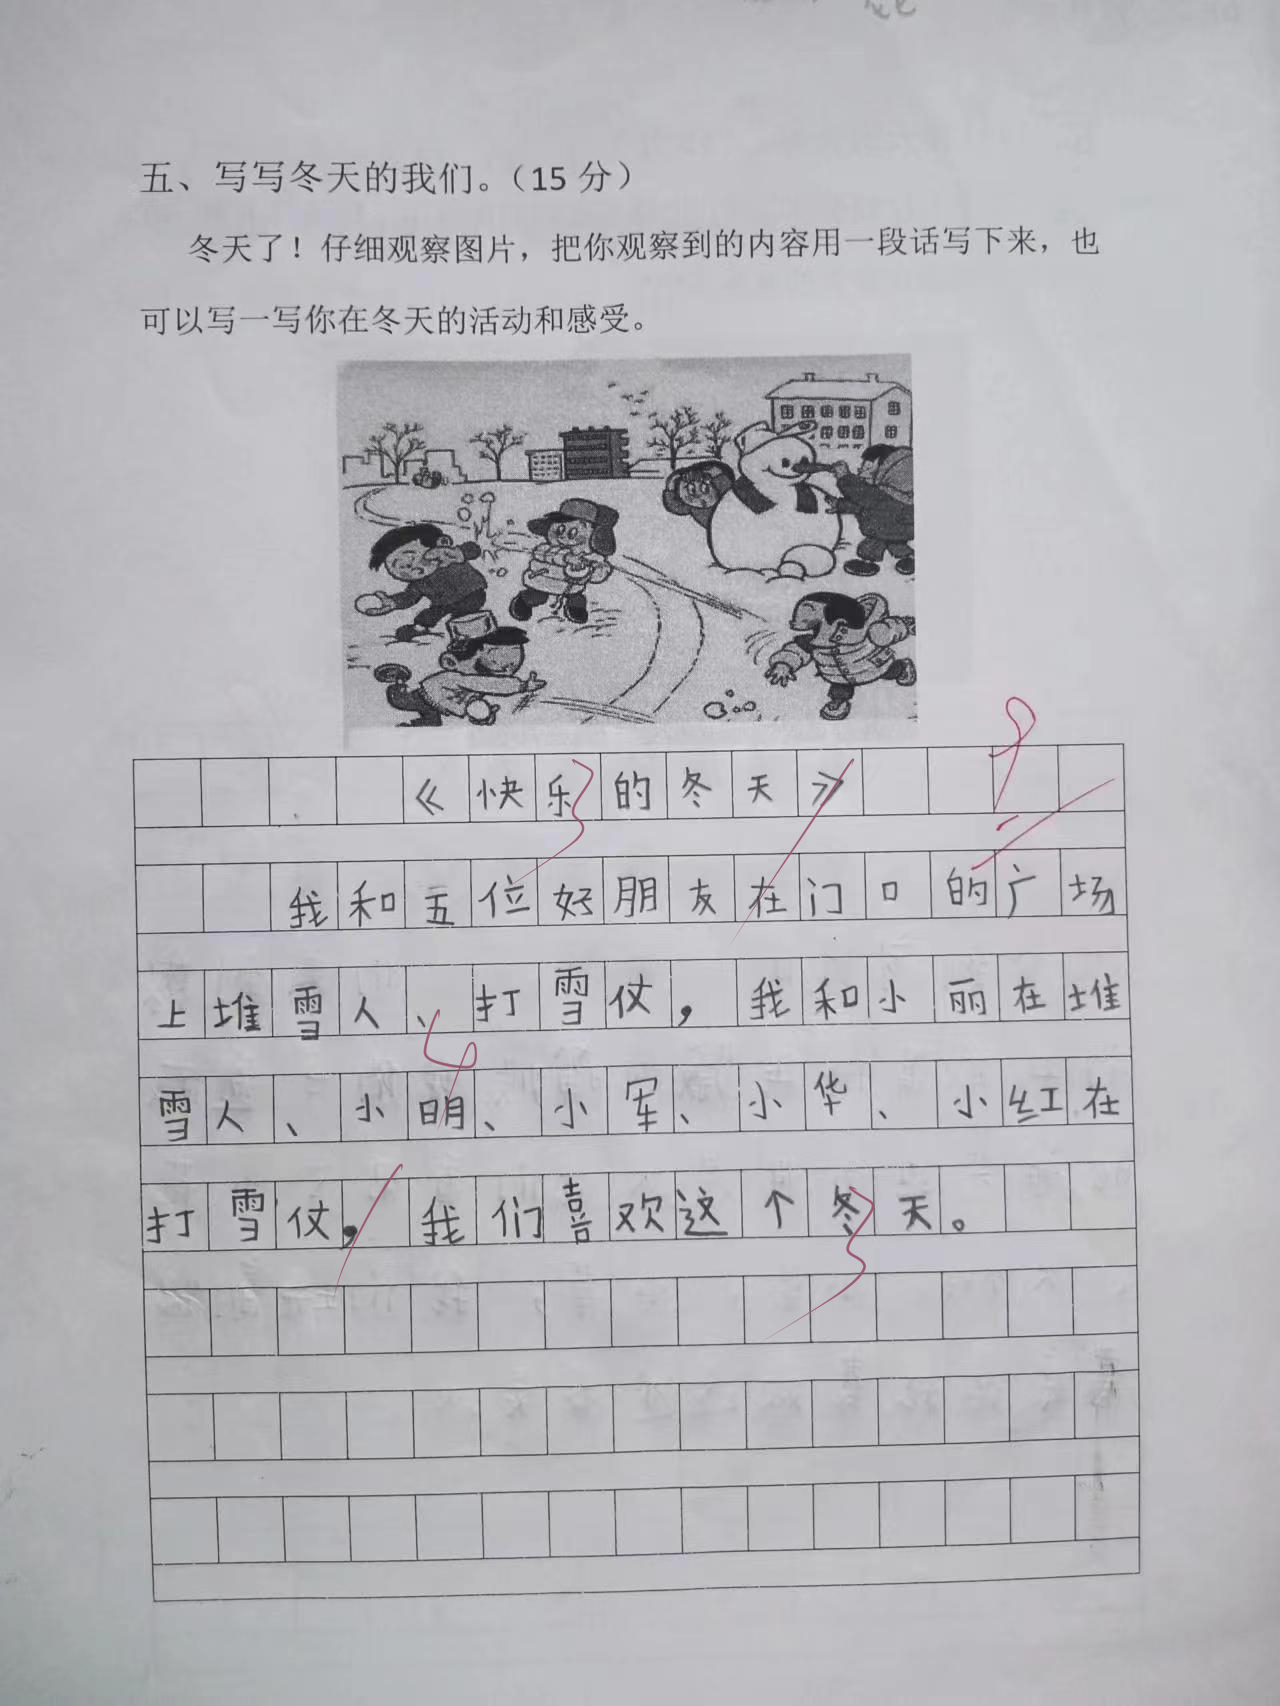 五、写写冬天的我们。（15 分）
冬天了！仔细观察图片，把你观察到的内容用一段话写下来，也
可以写一写你在冬天的活动和感受。
《快乐的冬天》
我和五位好朋友在门口的广场
上堆雪人、打雪仗，我和小丽在堆
雪人、小明、小军、小华、小红在
打雪仗，我们喜欢这个冬天。